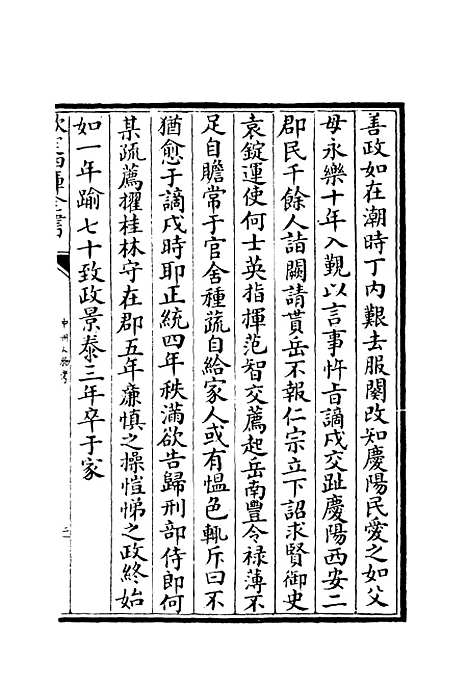 善政如在潮時丁内艱去服闋改知慶陽民愛之如父
母永樂十年入覲以言事忤旨謫戍交趾慶陽西安二
郡民千餘人詣闕請貰岳不報仁宗立下詔求賢御史
袁錠運使何士英指揮范智交薦起岳南豐令禄薄不
足自贍常于官舍種蔬自給家人或有愠色輒斥曰不
猶愈于謫戍時耶正統四年秩滿欲告歸刑部侍郎何
某疏薦擢桂林守在郡五年㢘慎之操愷悌之政終始
如一年踰七十致政景泰三年卒于家
欽定四庫全書
中州人物考